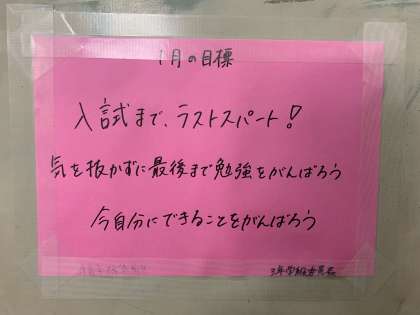 1月の目標
入試まで、ラストスパート!
気を抜かずに最後まで勉強をがんばろう
今自分にできることをがんばろう
3年学級委員長